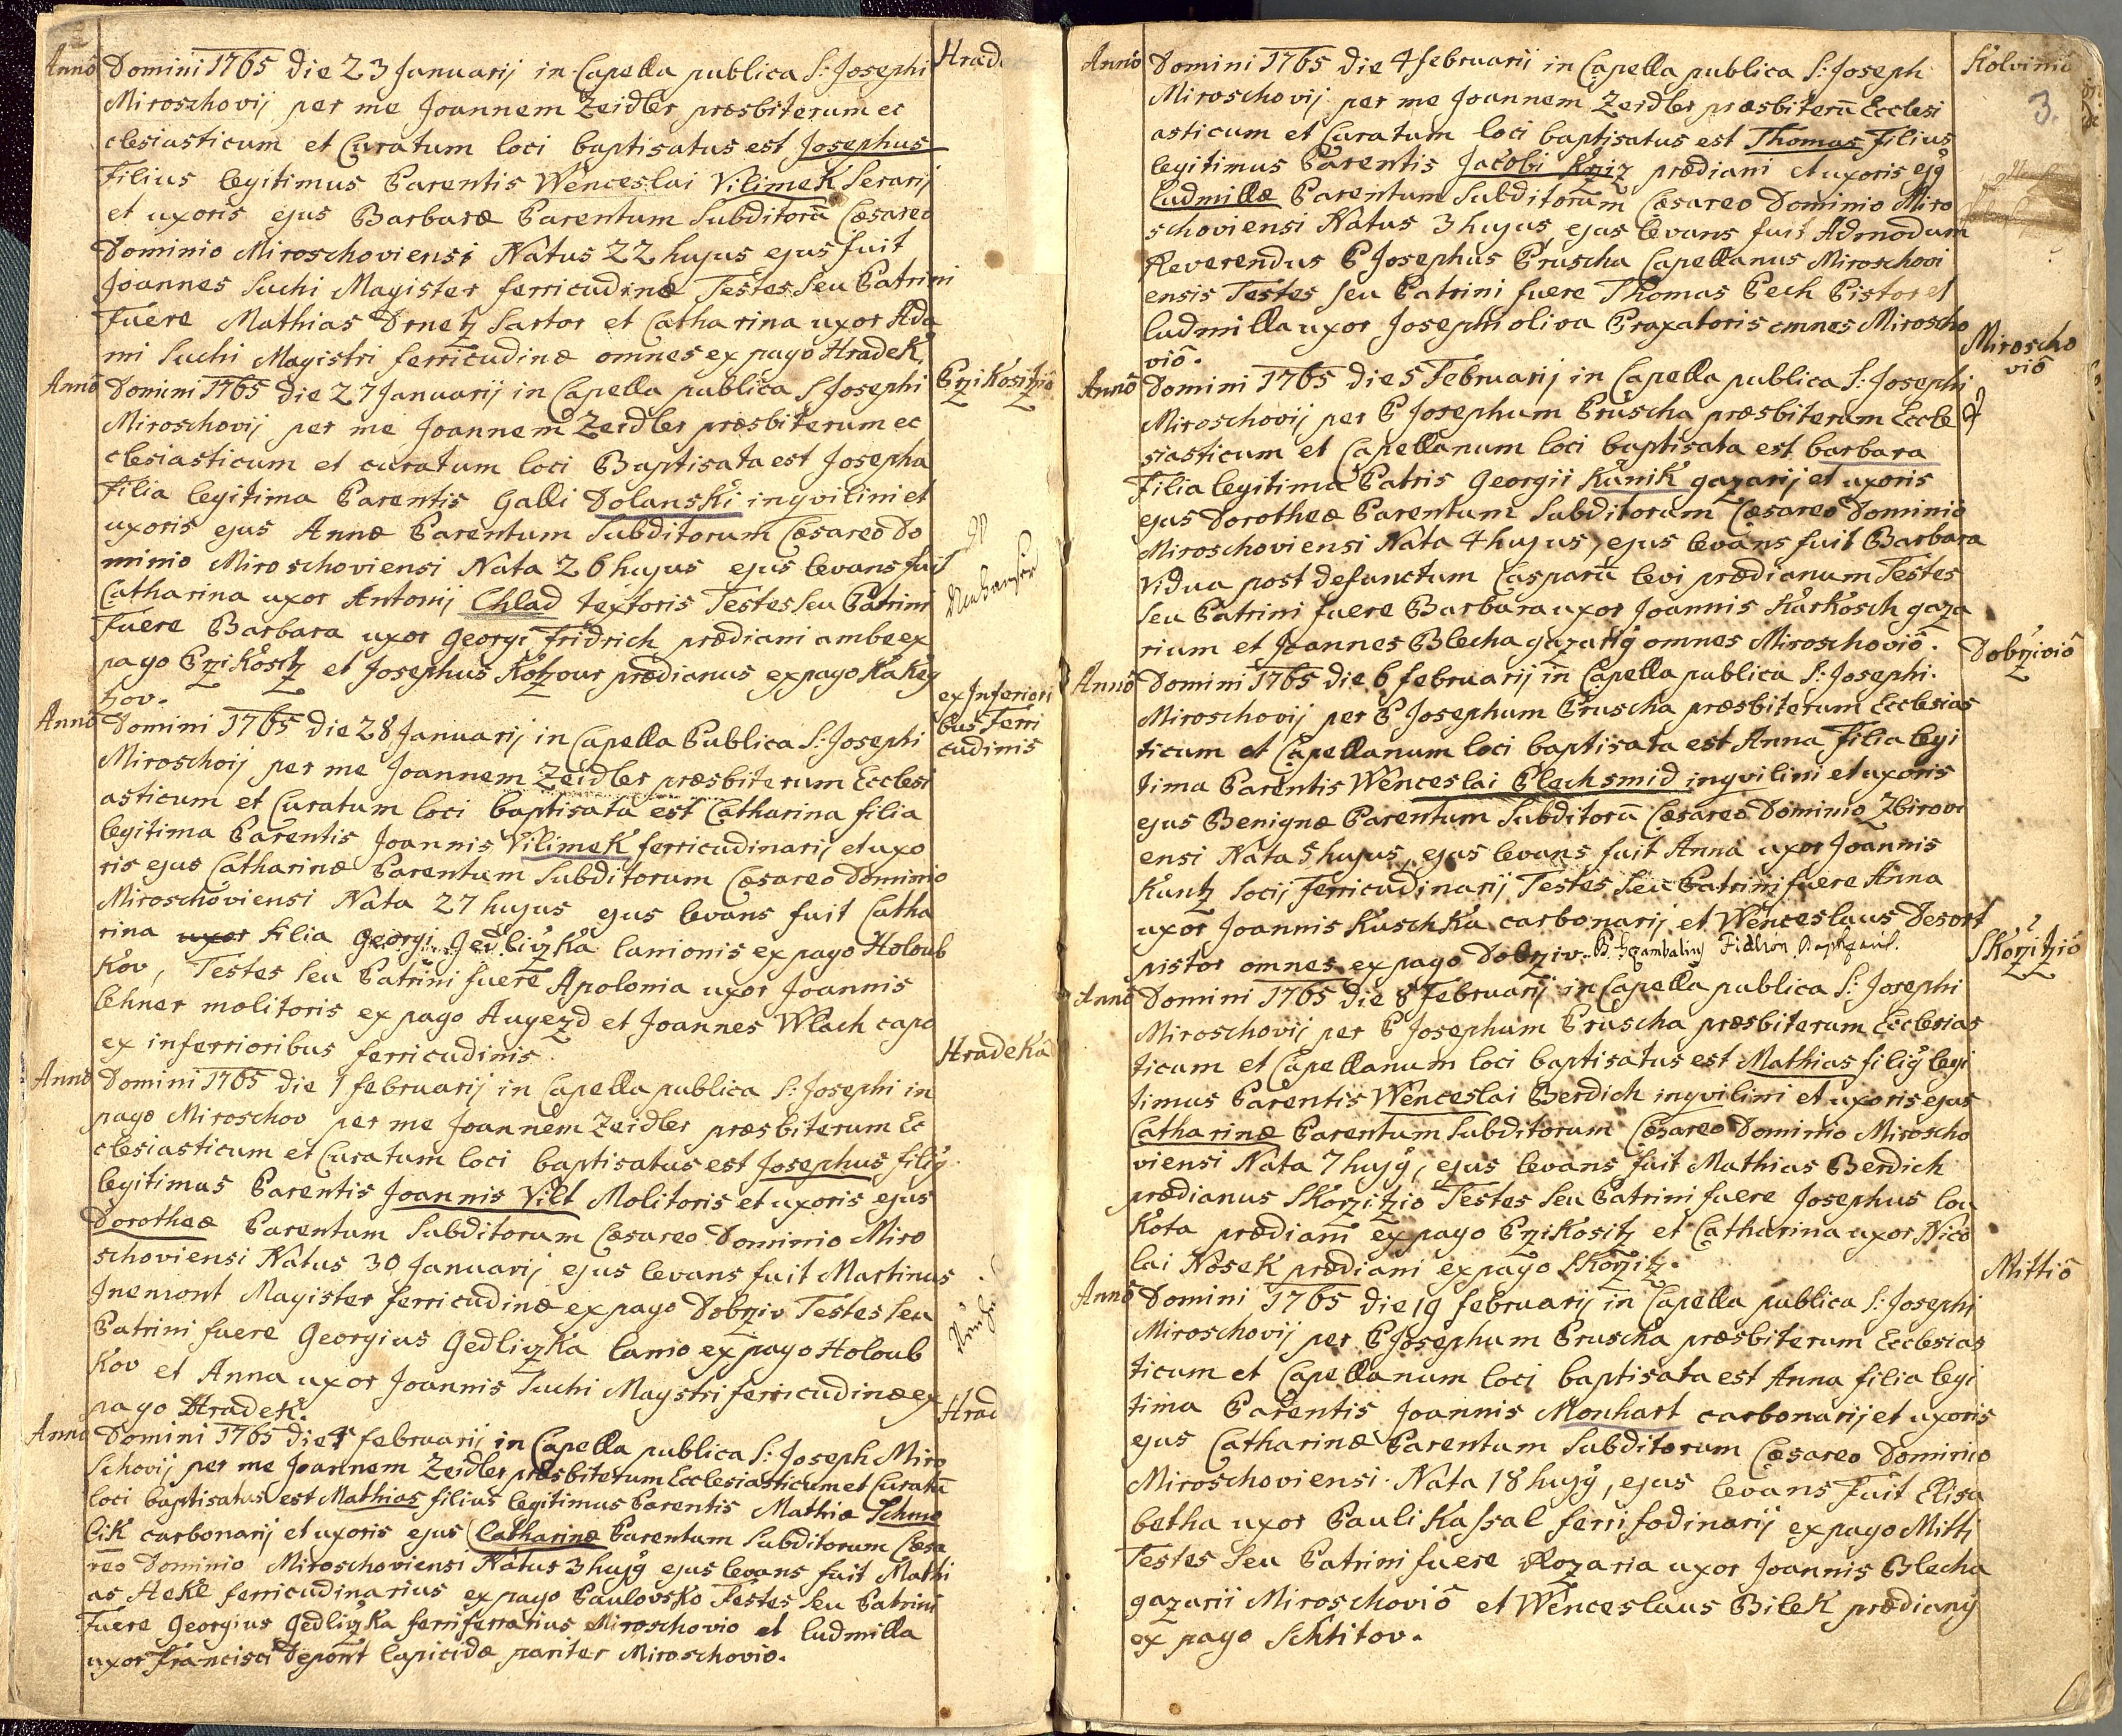 Hrad
Anno Domini 1765 die 23 Januarij in Capella publica S: Josephi
Miroschovij per me Joannem Zeidler præsbiterum ec
clesiasticum et Curatum loci baptisatus est Josephus
Filius legitimus Parentis Wenceslai Vilimek Serarij
et uxoris ejus Barbaræ Parentum Subditorū Cæsareo
Dominio Miroschoviensi Natus 22 hujus ejus fuit
Joannes Suchi Magister ferricudinæ Testes Seu Patrini
Fuere Mathias Drnetz Sartor et Catharina uxor Ada
mi Suchi Magistri ferricudinæ omnes ex pago Hradek.
Przikositzio
Anno Domini 1765 die 27 Januarij in Capella publica S Josephi
Miroschovij per me Joannem Zeidler præsbiterum ec
clesiasticum et curatum loci Baptisata est Josepha
filia legitima Parentis Galli Dolanski inqvilini et
uxoris ejus Annæ Parentum Subditorum Cæsareo Do
minio Miroschoviensi Nata 26 hujus ejus levans fuit
Catharina uxor Antonij Chlad textoris Testes Seu Patrini
Fuere Barbara uxor Georgi Fridrich prædiani ambe ex
pago Przikositz et Josephus Kotzour prædianus ex pago Kakeg
zov.
ex Inferiori
bus Ferri
cudinis
Anno Domini 1765 die 28 Januarij in Capella Publica S: Josephi
Miroschoij per me Joannem Zeidler præsbiterum Ecclesi
asticum et Curatum loci baptisata est Catharina filia
legitima Parentis Joannis Vilimek ferricudinarij et uxo
ris ejus Catharinæ Parentum Subditorum Cæsareo Dominio
Miroschoviensi Nata 27 hujus ejus levans fuit Catha
rina uxor filia Georgi Gedlizka lanionis ex pago Holoub
kov, Testes Seu Patrini fuere Apolonia uxor Joannis
lehner molitoris ex pago Augezd et Joannes Wlach capo
ex inferrioribus ferricudinis.
Hradeka
Anno Domini 1765 die 1 februarij in Capella publica S: Josephi in
pago Miroschov per me Joannem Zeidler præsbiterum Ec
clesiasticum et Curatum loci baptisatus est Josephus filiy
legitimus Parentis Joannis Vilt Molitoris et uxoris ejus
Dorotheæ Parentum Subditorum Cæsareo Dominio Miro
schoviensi Natus 30 Januarij ejus levans fuit Martinus
Inemont Magister ferricudinæ ex pago Dobrziv Testes Seu
Patrini fuere Georgius Gedlizka lanio ex pago Holoub
kov et Anna uxor Joannis Suchi Magistri ferricudinæ ex
pago Hradek.
Hrad
Anno Domini 1765 die 4 februarij in Capella publica S: Joseph Miro
schovij per me Joannem Zeidler præsbiterum Ecclesiasticum et Curatū
loci baptisatus est Mathias filius legitimus Parentis Mathiæ Schme
lik carbonarij et uxoris ejus Catharinæ Parentum Subditorum Cæsa
reo Dominio Miroschoviensi Natus 3 hujy ejus levans fuit Mathi
as Hekl ferricudinarius ex pago Paulovsko Testes Seu Patrini
Fuere Georgius Gedlizka ferriferrarius Miroschovio et ludmilla
uxor Francisci Depont lapicidæ pariter Miroschovio.
Kolvinio
3.
Anno Domini 1765 die 4 februarij in Capella publica S: Joseph
Miroschovij per me Joannem Zeidler præsbiterū Ecclesi
asticum et Curatum loci baptisatus est Thomas Filius
legitimus Parentis Jacobi Krziz prædiani et uxoris ejy
Ludmillæ Parentum Subditorum Cæsareo Dominio Miro
schoviensi Natus 3 hujus ejus levans fuit Admodum
Reverendus P Josephus Pruscha Capellanus Miroschovi
ensis Testes seu Patrini fuere Thomas Pech Pistor et
ludmilla uxor Josephi oliva Praxatoris omnes Miroscho
vio.
Miroscho
vio
Anno Domini 1765 die 5 Februarij in Capella publica S: Josephi
Miroschovij per P Josephum Pruscha præsbiterum Eccle
siasticum et Capellanum loci baptisata est barbara
Filia legitima Patris Georgii Kunik gazarij et uxoris
ejus Dorotheæ Parentum Subditorum Cæsareo Dominio
Miroschoviensi Nata 4 hujus, ejus levans fuit Barbara
Vidua post defunctum Casparū levi prædianum Testes
Seu Patrini fuere Barbara uxor Joannis Karkosch gaza
rium et Joannes Blecha gazariy omnes Miroschovio.
Dobrzivio
Anno Domini 1765 die 6 februarij in Capella publica S: Josephi.
Miroschovij per P Josephum Pruscha præsbiterum Ecclesias
ticum et Capellanum loci baptisata est Anna Filia legi
tima Parentis Wenceslai Plechsmid inqvilini et uxoris
ejus Benignæ Parentum Subditorū Cæsareo Dominio Zbirovi
ensi Nata 5 hujus, ejus levans fuit Anna uxor Joannis
Kuntz Socij Ferricudinarij Testes Seu Patrini fuere Anna
uxor Joannis Kuschka carbonarij et Wenceslaus Desort
pistor omnes ex pago Dobrziv.
Skorzitzio
Anno Domini 1765 die 8 Februarij in Capella publica S: Josephi
Miroschovij per P Josephum Pruscha præsbiterum Ecclesias
ticum et Capellanum loci baptisatus est Mathias filiy legi
timus Parentis Wenceslai Berdich inqvilini et uxoris ejus
Catharinæ Parentum Subditorum Cæsareo Dominio Miroscho
viensi Nata 7 hujy, ejus levans fuit Mathias Berdich
prædianus Skorzitzio Testes Seu Patrini fuere Josephus lou
kota prædiani ex pago Przikositz et Catharina uxor Nico
lai Nosek prædiani ex pago Skorzitz.
Mittio
Anno Domini 1765 die 19 februarij in Capella publica S: Josephi
Miroschovij per P Josephum Pruscha præsbiterum Ecclesias
ticum et Capellanum loci baptisata est Anna filia legi
tima Parentis Joannis Monhart carbonarij et uxoris
ejus Catharinæ Parentum Subditorum Cæsareo Dominio
Miroschoviensi. Nata 18 hujy, ejus levans Fuit Elisa
betha uxor Pauli Kassal ferri fodinarij ex pago Mitti
Testes Seu Patrini fuere Rozaria uxor Joannis Blecha
gazarii Miroschovio et Wenceslaus Bilek prædiany
ex pago Schtitov.